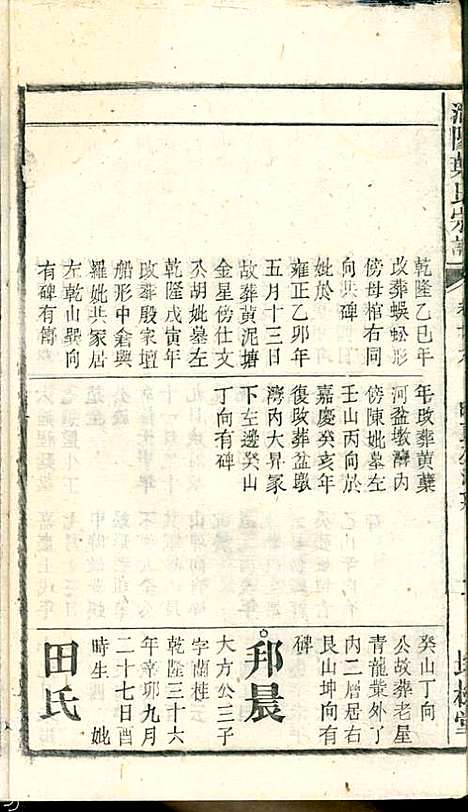 乾隆乙巳年
改葬蜈蚣形
傍母棺右同
向共碑
妣於
雍正乙卯年
五月十三日
故葬黃泥塘
金星傍仕文
公胡妣墓左
乾隆戊寅年
改葬殷家壇
船形中倉與
羅妣共冢居
左乾山巽向
有碑有傳
年改葬黃蘗
河盆墩灣內
傍陳妣墓左
壬山丙向於
嘉慶癸亥年
復改葬盆墩
灣內大昇冢
下左邊癸山
丁向有碑
癸山丁向
公故葬老屋
青龍業外了
內二層居右
艮山坤向有
碑
邦晨
大方公三子
字蘭桂
乾隆三十六
年辛卯九月
二十七日酉
時生 妣
田氏